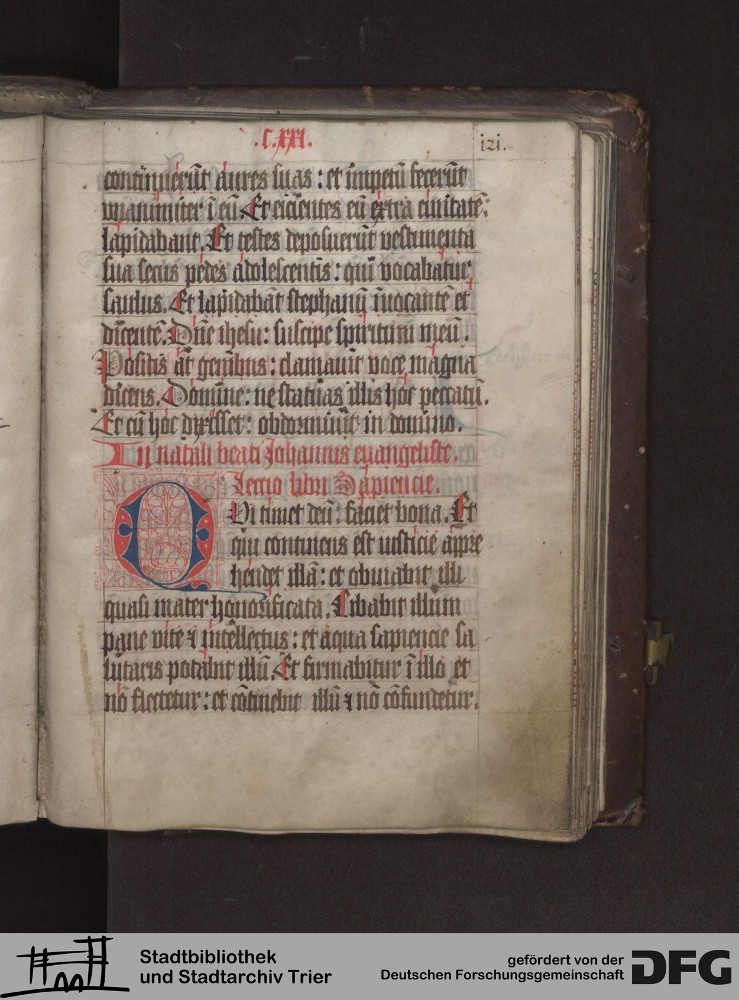 .C.xxi.
izi.
continuerūt aures suas : et impetū fecerūt
vnanimiter ī eū. Et eicientes eū extra ciuitatē:
lapidabant. Et testes deposuerūt vestimenta
sua secus pedes adolescentis : qui vocabatur
saulus. Et lapidabāt stephanū īuocantē et
dicentē. Dn̄e ihesu : suscipe spiritum meū.
Positis āt genibus : clamauit voce magna
dicens. Domine : ne statuas illis hoc peccatū.
Et cū hoc dixisset : obdormiuit in domino.
In natali beati Johannis euangeliste.
Lectio libri Sapiencie.
QVi timet deū : faciet bona. Et
qui continens est iusticie appre
hendet illā : et obuiabit illi
quasi mater honorificata. Cibabit illum
pane vite ⁊ intellectus : et aqua sapiencie sa
lutaris potabit illū. Et firmabitur ī illo et
nō flectetur : et cōtinebit illū ⁊ nō cōfundetur.
Stadtbibliothek
und Stadtarchiv Trier
gefördert von der
Deutschen Forschungsgemeinschaft
DFG